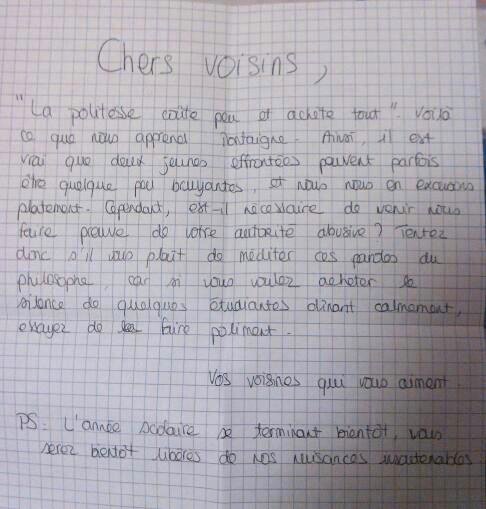 Chers voisins,
"La politesse coûte peu et achète tout". Voilà
ce que nous apprend Montaigne. Ainsi, il est
vrai que deux jeunes effrontées peuvent parfois
être quelque peu bruyantes, et nous nous en excusons
platement. Cependant, est-il nécessaire de venir nous
faire preuve de votre autorité abusive ? Tentez
donc s'il vous plaît de méditer ces paroles du
philosophe, car si vous voulez acheter le
silence de quelques étudiantes dînant calmement,
essayez de le faire poliment.
Vos voisines qui vous aiment.
PS: L'année scolaire se terminant bientôt, vous
serez bientôt libérés de nos nuisances insoutenables.